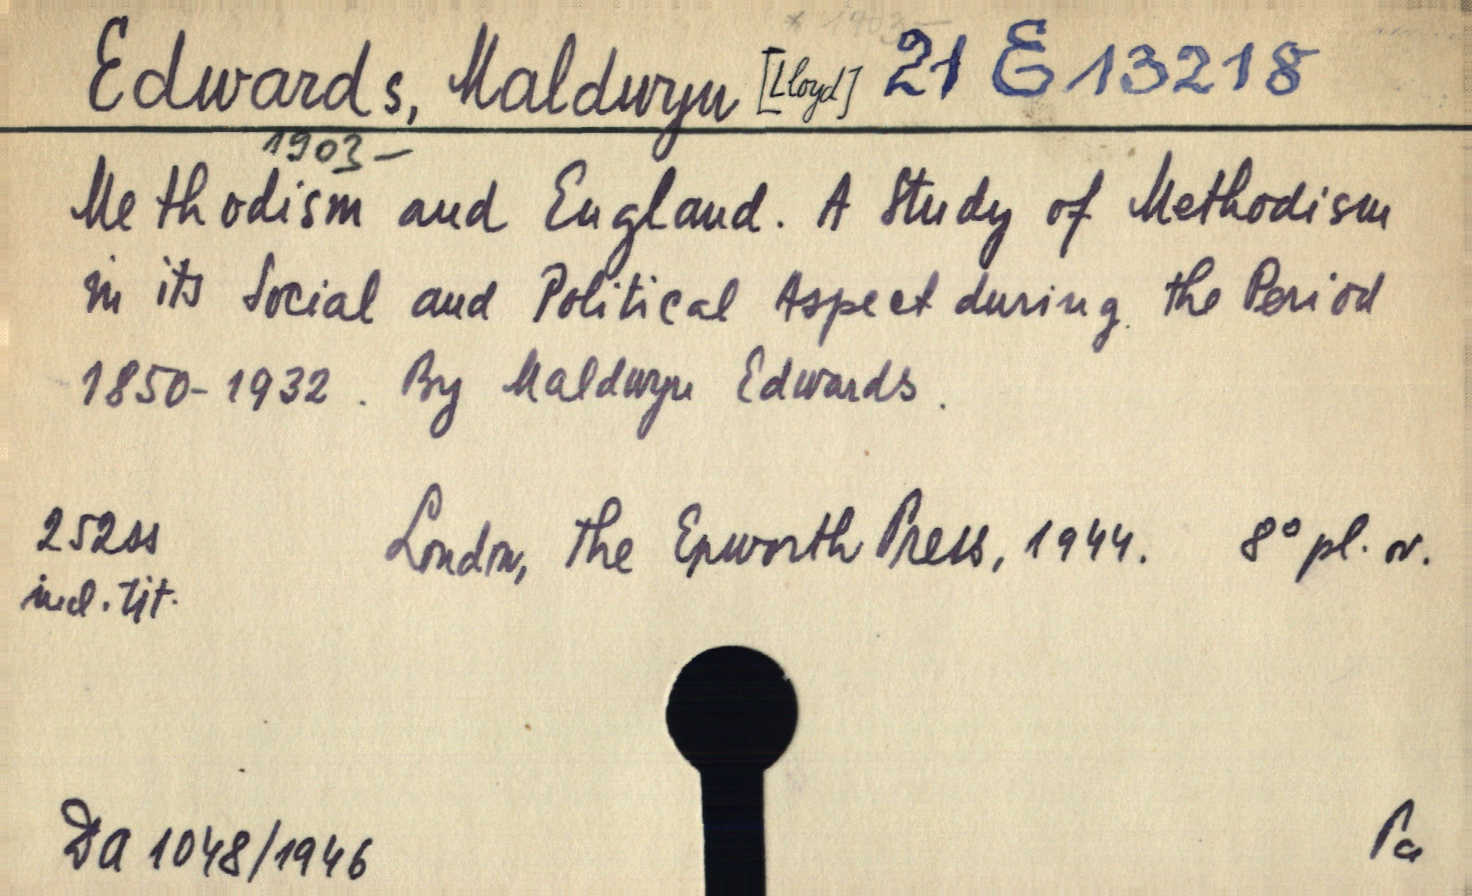 * 1903-
Edwards, Maldwyn [Lloyd] 21 E 13218
1903-
Methodism and England. A Study of Methodism
in its Social and Political Aspect during the Period
1850-1932. By Maldwyn Edwards.
252ss London, the Epworth Press, 1944. 8° pl. v.
incl. tit.
Da 1048/1946 Pa